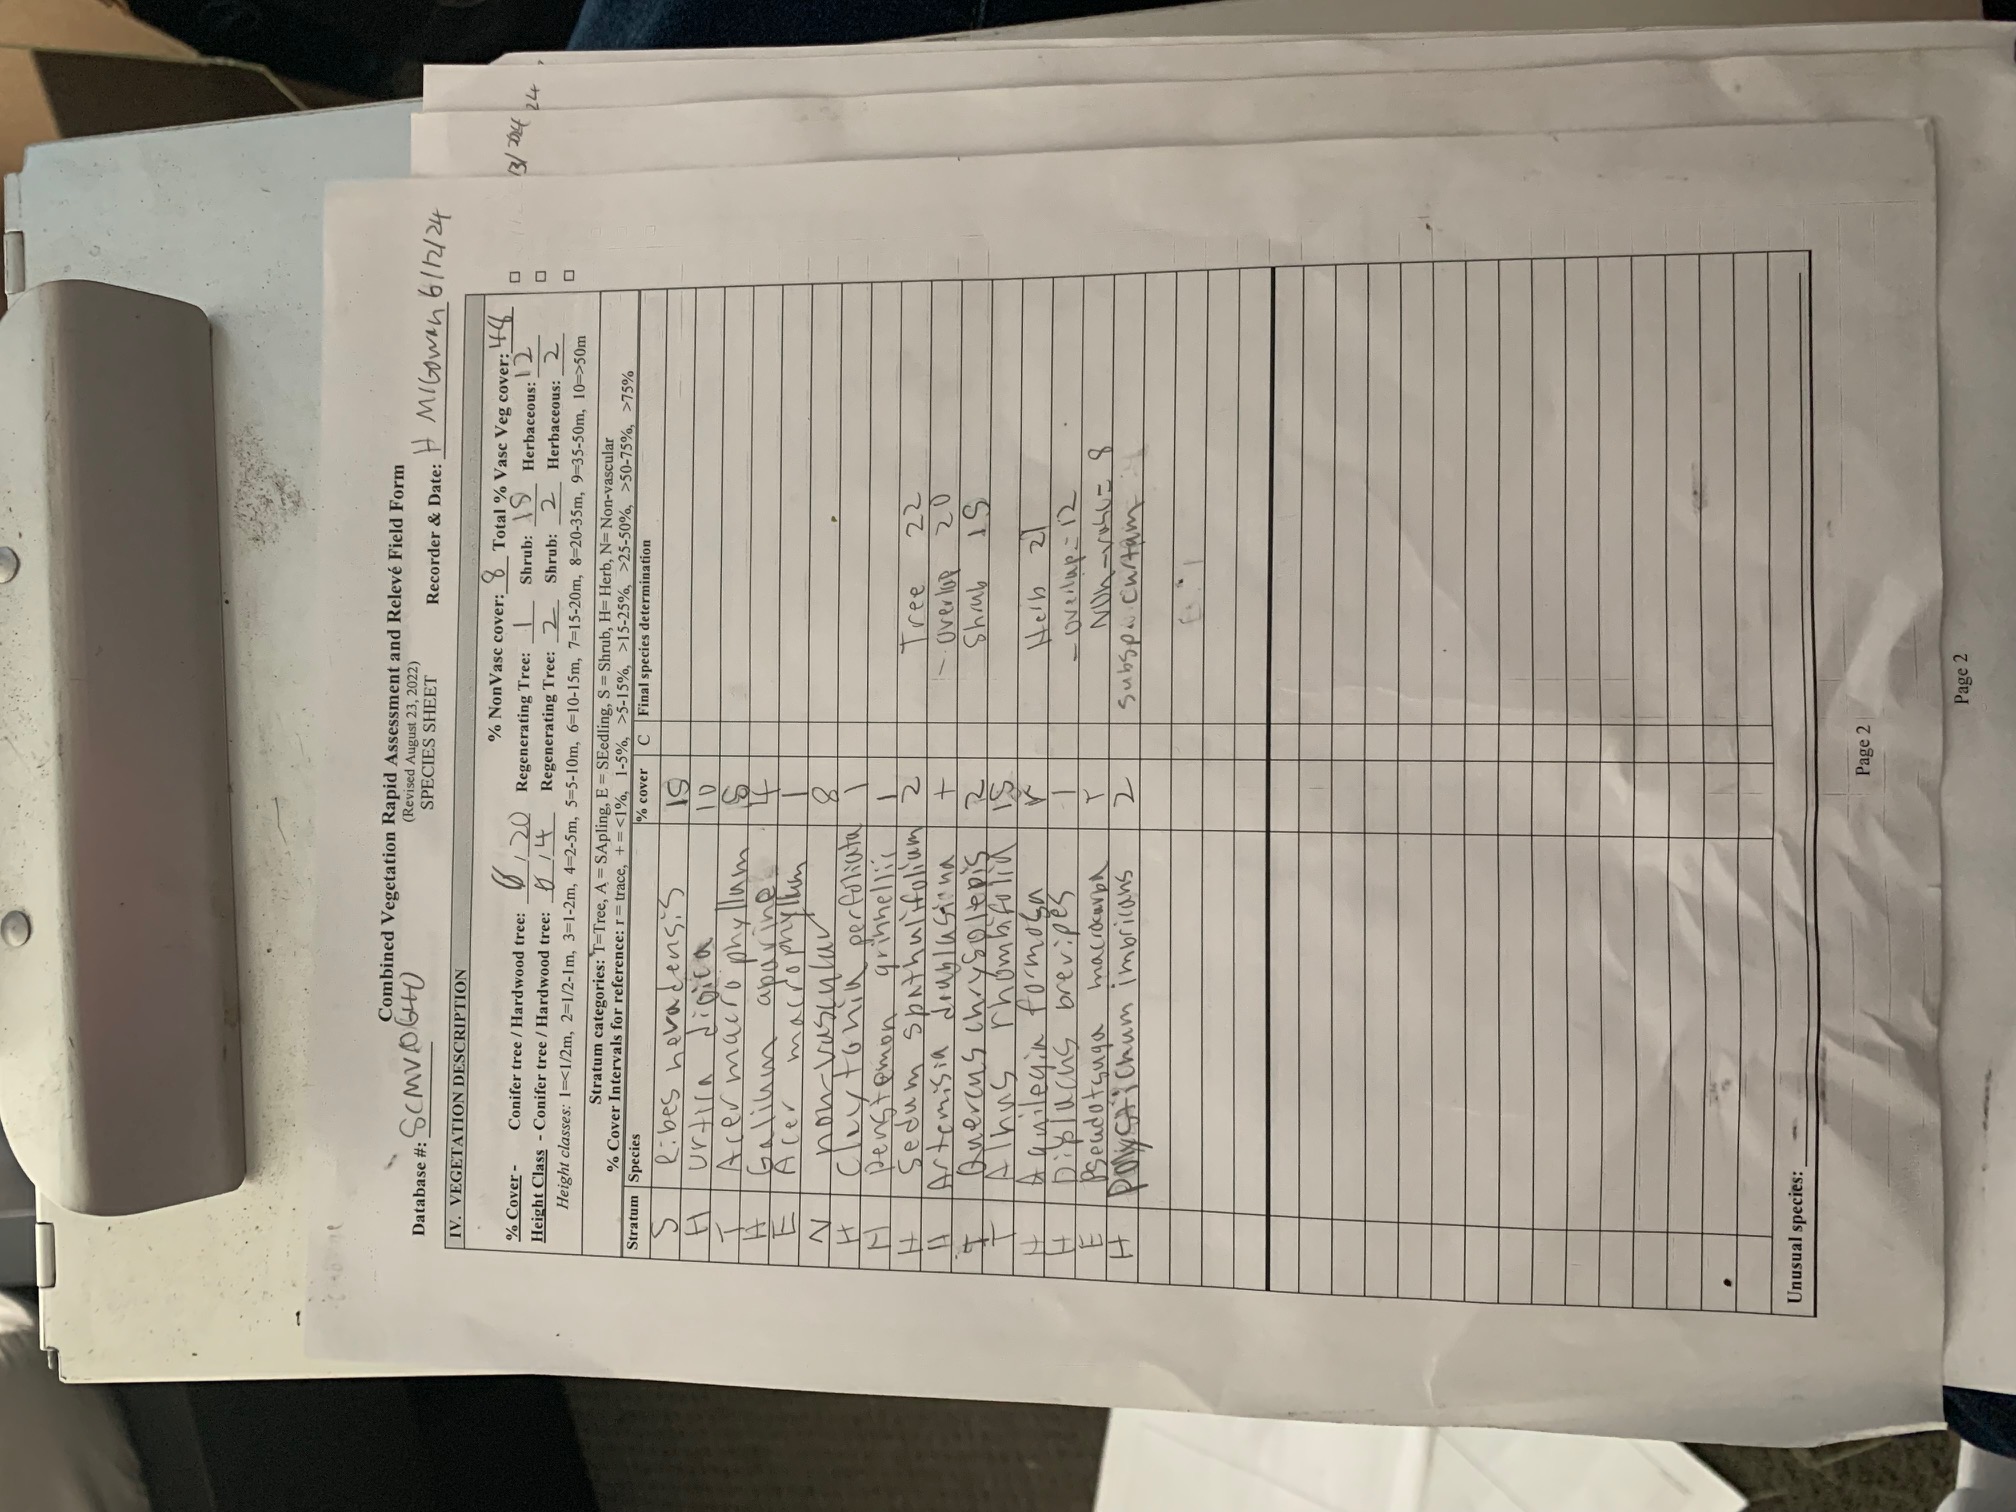 Combined Vegetation Rapid Assessment and Relevé Field Form
(Revised August 23, 2022)
SPECIES SHEET
Database #: Recorder & Date: H McGowan 6/12/24
IV. VEGETATION DESCRIPTION
% NonVasc cover: 8 Total % Vasc Veg cover: 48
% Cover - Conifer tree / Hardwood tree: 0 / 20 Regenerating Tree: 1 Shrub: 15 Herbaceous: 12
Height Class - Conifer tree / Hardwood tree: 0 / 4 Regenerating Tree: 2 Shrub: 2 Herbaceous: 2
Height classes: 1=<1/2m, 2=1/2-1m, 3=1-2m, 4=2-5m, 5=5-10m, 6=10-15m, 7=15-20m, 8=20-35m, 9=35-50m, 10=>50m
Stratum categories: T=Tree, A = SApling, E = SEedling, S = Shrub, H= Herb, N= Non-vascular
% Cover Intervals for reference: r = trace, + = <1%, 1-5%, >5-15%, >15-25%, >25-50%, >50-75%, >75%
Stratum Species % cover C Final species determination
S Ribes nevadensis 15
H Urtica dioica 10
T Acer macrophyllum 5
H Galium aparine 4
E Acer macrophyllum 1
N non-vascular 8
H Claytonia perfoliata 1
H Penstemon grinnellii 1
H Sedum spathulifolium 2 Tree 22
H Artemisia douglasiana + - overlap 20
T Quercus chrysolepis 2 Shrub 15
T Alnus rhombifolia 15
H Aquilegia formosa r Herb 21
H Diplacus brevipes 1 - overlap = 12
E Pseudotsuga macrocarpa r Non-vasc = 8
H Polystichum imbricans 2 subsp. curtum
Unusual species:
Page 2
Page 2